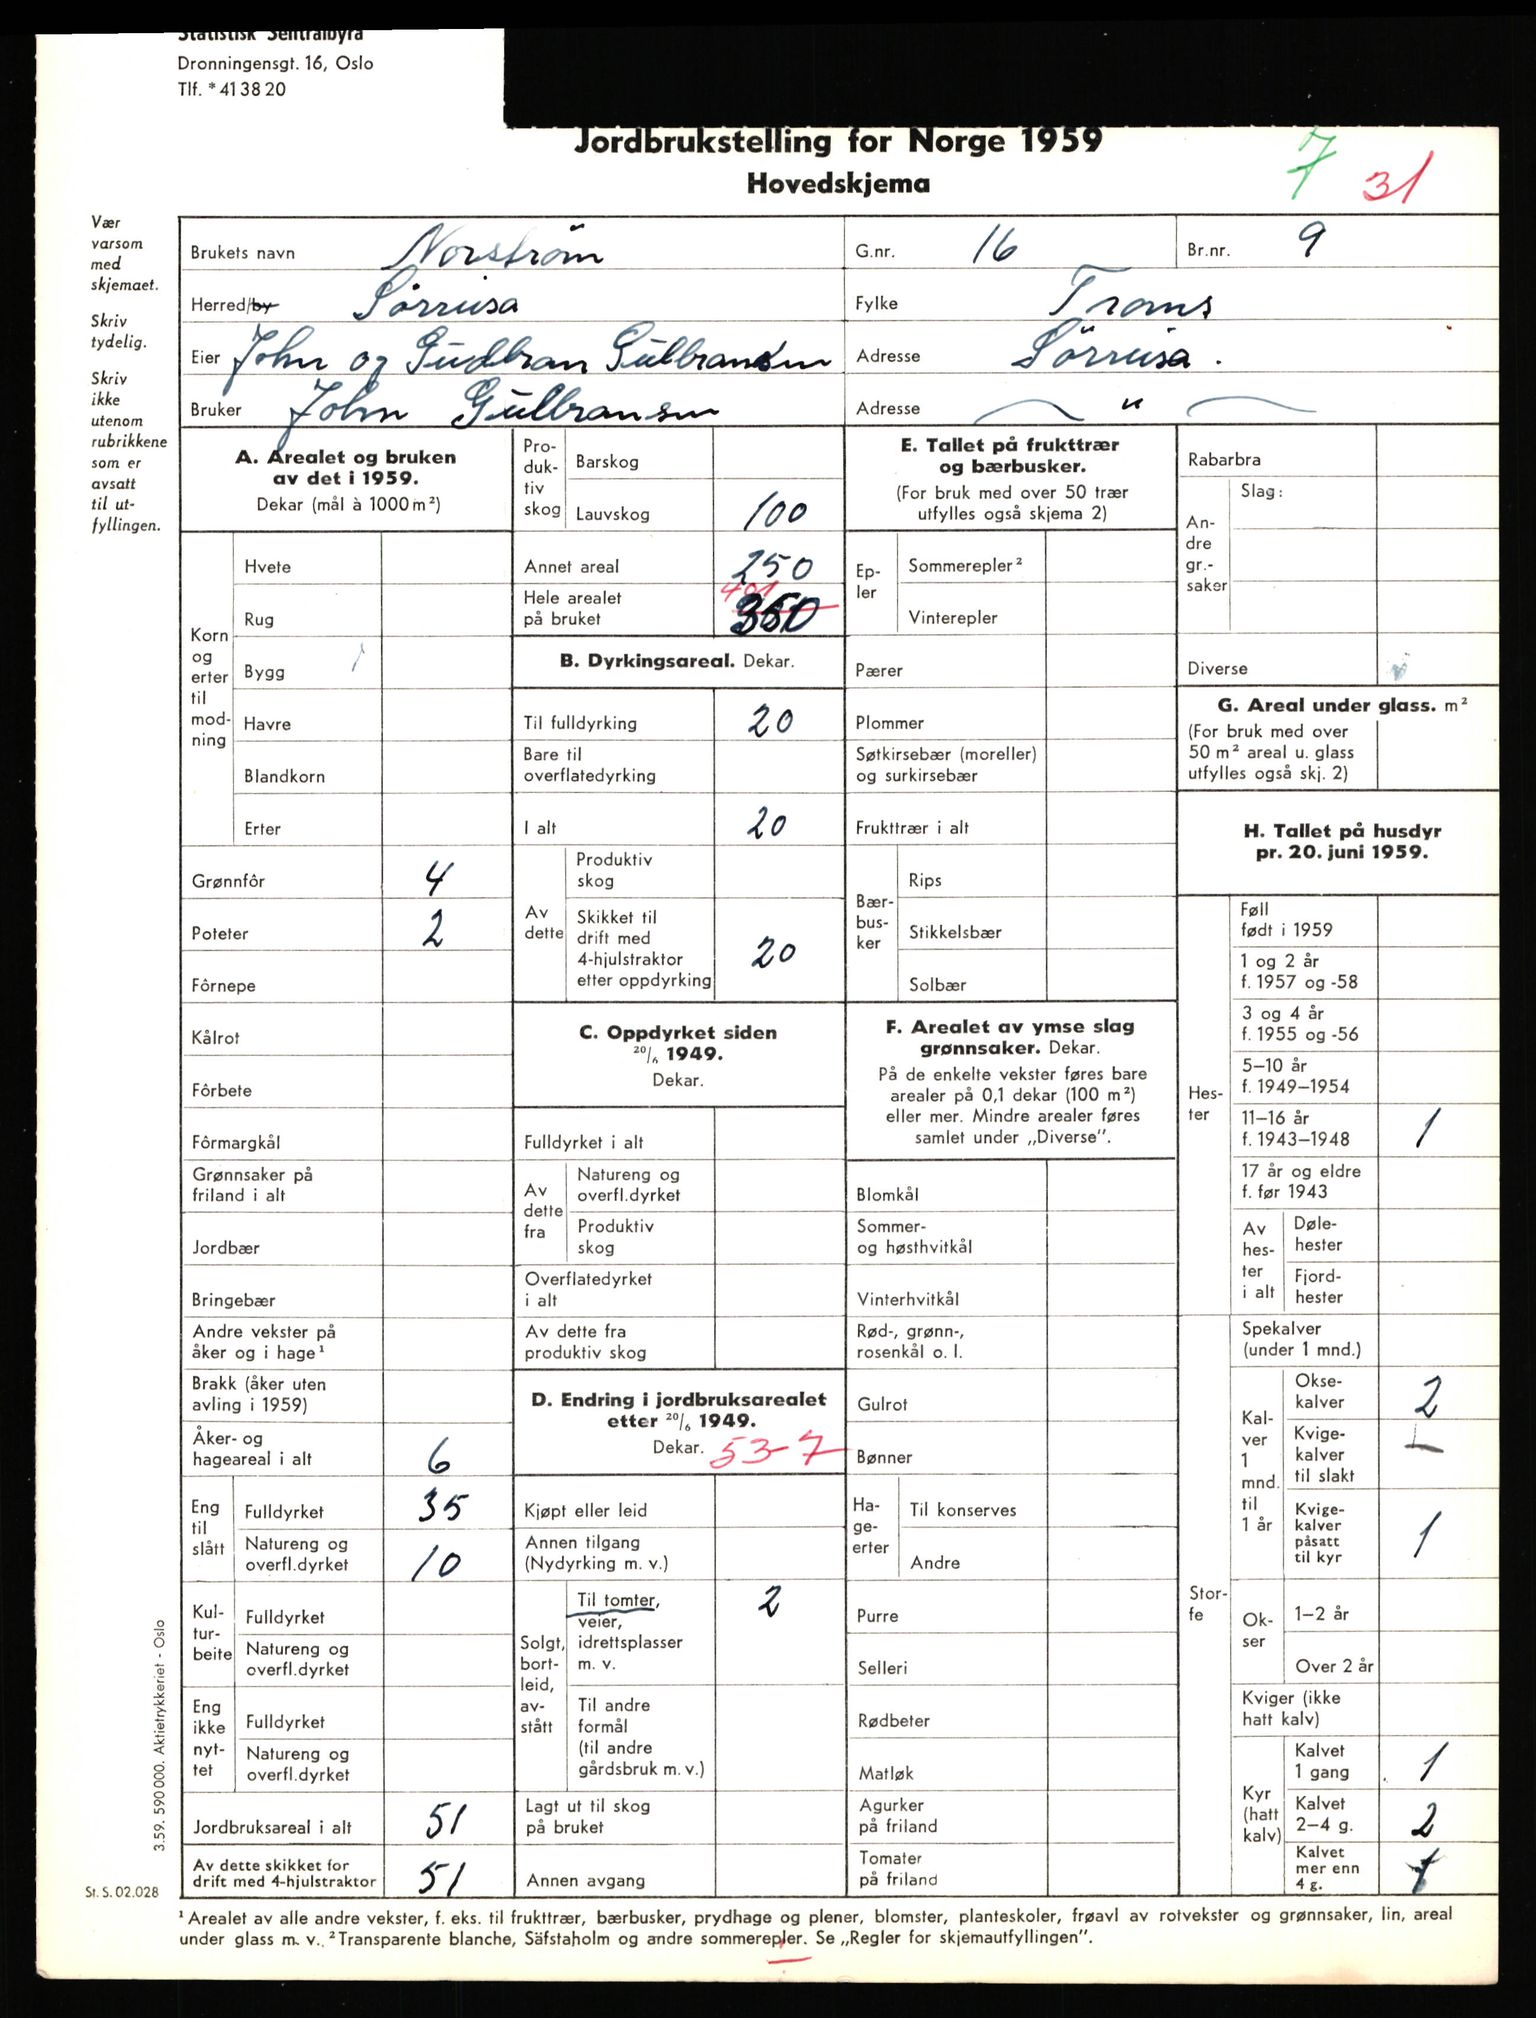 Statistisk Sentralbyrå
Dronningensgt. 16, Oslo
Tlf. * 41 38 20
Jordbrukstelling for Norge 1959
Hovedskjema
7 31
Vær
varsom
med
skjemaet.
Skriv
tydelig.
Skriv
ikke
utenom
rubrikkene
som er
avsatt
til ut-
fyllingen.
Brukets navn Norström G.nr. 16 Br.nr. 9
Herred/by Sörreisa Fylke Troms
Eier John og Gudbran Gulbransen Adresse Sörreisa.
Bruker John Gulbransen Adresse "
A. Arealet og bruken
av det i 1959.
Dekar (mål à 1000 m²)
Korn
og
erter
til
mod-
ning
Hvete
Rug
Bygg
Havre
Blandkorn
Erter
Grønnfôr 4
Poteter 2
Fôrnepe
Kålrot
Fôrbete
Fôrmargkål
Grønnsaker på
friland i alt
Jordbær
Bringebær
Andre vekster på
åker og i hage¹
Brakk (åker uten
avling i 1959)
Åker- og
hageareal i alt 6
Eng
til
slått
Fulldyrket 35
Natureng og
overfl.dyrket 10
Kul-
tur-
beite
Fulldyrket
Natureng og
overfl.dyrket
Eng
ikke
nyt-
tet
Fulldyrket
Natureng og
overfl.dyrket
Jordbruksareal i alt 51
Av dette skikket for
drift med 4-hjulstraktor 51
Pro-
duk-
tiv
skog
Barskog
Lauvskog 100
Annet areal 250
401
Hele arealet
på bruket 350
B. Dyrkingsareal. Dekar.
Til fulldyrking 20
Bare til
overflatedyrking
I alt 20
Av
dette
Produktiv
skog
Skikket til
drift med
4-hjulstraktor
etter oppdyrking 20
C. Oppdyrket siden
20/6 1949.
Dekar.
Fulldyrket i alt
Av
dette
fra
Natureng og
overfl.dyrket
Produktiv
skog
Overflatedyrket
i alt
Av dette fra
produktiv skog
D. Endring i jordbruksarealet
etter 20/6 1949.
Dekar. 53-7
Kjøpt eller leid
Annen tilgang
(Nydyrking m. v.)
Solgt,
bort-
leid,
av-
stått
Til tomter,
veier,
idrettsplasser
m. v. 2
Til andre
formål
(til andre
gårdsbruk m. v.)
Lagt ut til skog
på bruket
Annen avgang
E. Tallet på frukttrær
og bærbusker.
(For bruk med over 50 trær
utfylles også skjema 2)
Ep-
ler
Sommerepler²
Vinterepler
Pærer
Plommer
Søtkirsebær (moreller)
og surkirsebær
Frukttrær i alt
Bær-
bus-
ker
Rips
Stikkelsbær
Solbær
F. Arealet av ymse slag
grønnsaker. Dekar.
På de enkelte vekster føres bare
arealer på 0,1 dekar (100 m²)
eller mer. Mindre arealer føres
samlet under „Diverse”.
Blomkål
Sommer-
og høsthvitkål
Vinterhvitkål
Rød-, grønn-,
rosenkål o. l.
Gulrot
Bønner
Ha-
ge-
erter
Til konserves
Andre
Purre
Selleri
Rødbeter
Matløk
Agurker
på friland
Tomater
på friland
Rabarbra
An-
dre
gr.-
saker
Slag:
Diverse
G. Areal under glass. m²
(For bruk med over
50 m² areal u. glass
utfylles også skj. 2)
H. Tallet på husdyr
pr. 20. juni 1959.
Hes-
ter
Føll
født i 1959
1 og 2 år
f. 1957 og -58
3 og 4 år
f. 1955 og -56
5–10 år
f. 1949–1954
11–16 år
f. 1943–1948 1
17 år og eldre
f. før 1943
Av
hes-
ter
i alt
Døle-
hester
Fjord-
hester
Stor-
fe
Spekalver
(under 1 mnd.)
Kal-
ver
1
mnd.
til
1 år
Okse-
kalver 2
Kvige-
kalver
til slakt
Kvige-
kalver
påsatt
til kyr 1
Ok-
ser
1–2 år
Over 2 år
Kviger (ikke
hatt kalv)
Kyr
(hatt
kalv)
Kalvet
1 gang 1
Kalvet
2–4 g. 2
Kalvet
mer enn
4 g.
3.59. 590 000. Aktietrykkeriet - Oslo
St. S. 02.028
¹ Arealet av alle andre vekster, f. eks. til frukttrær, bærbusker, prydhage og plener, blomster, planteskoler, frøavl av rotvekster og grønnsaker, lin, areal
under glass m. v.. ² Transparente blanche, Säfstaholm og andre sommerepler. Se „Regler for skjemautfyllingen”.